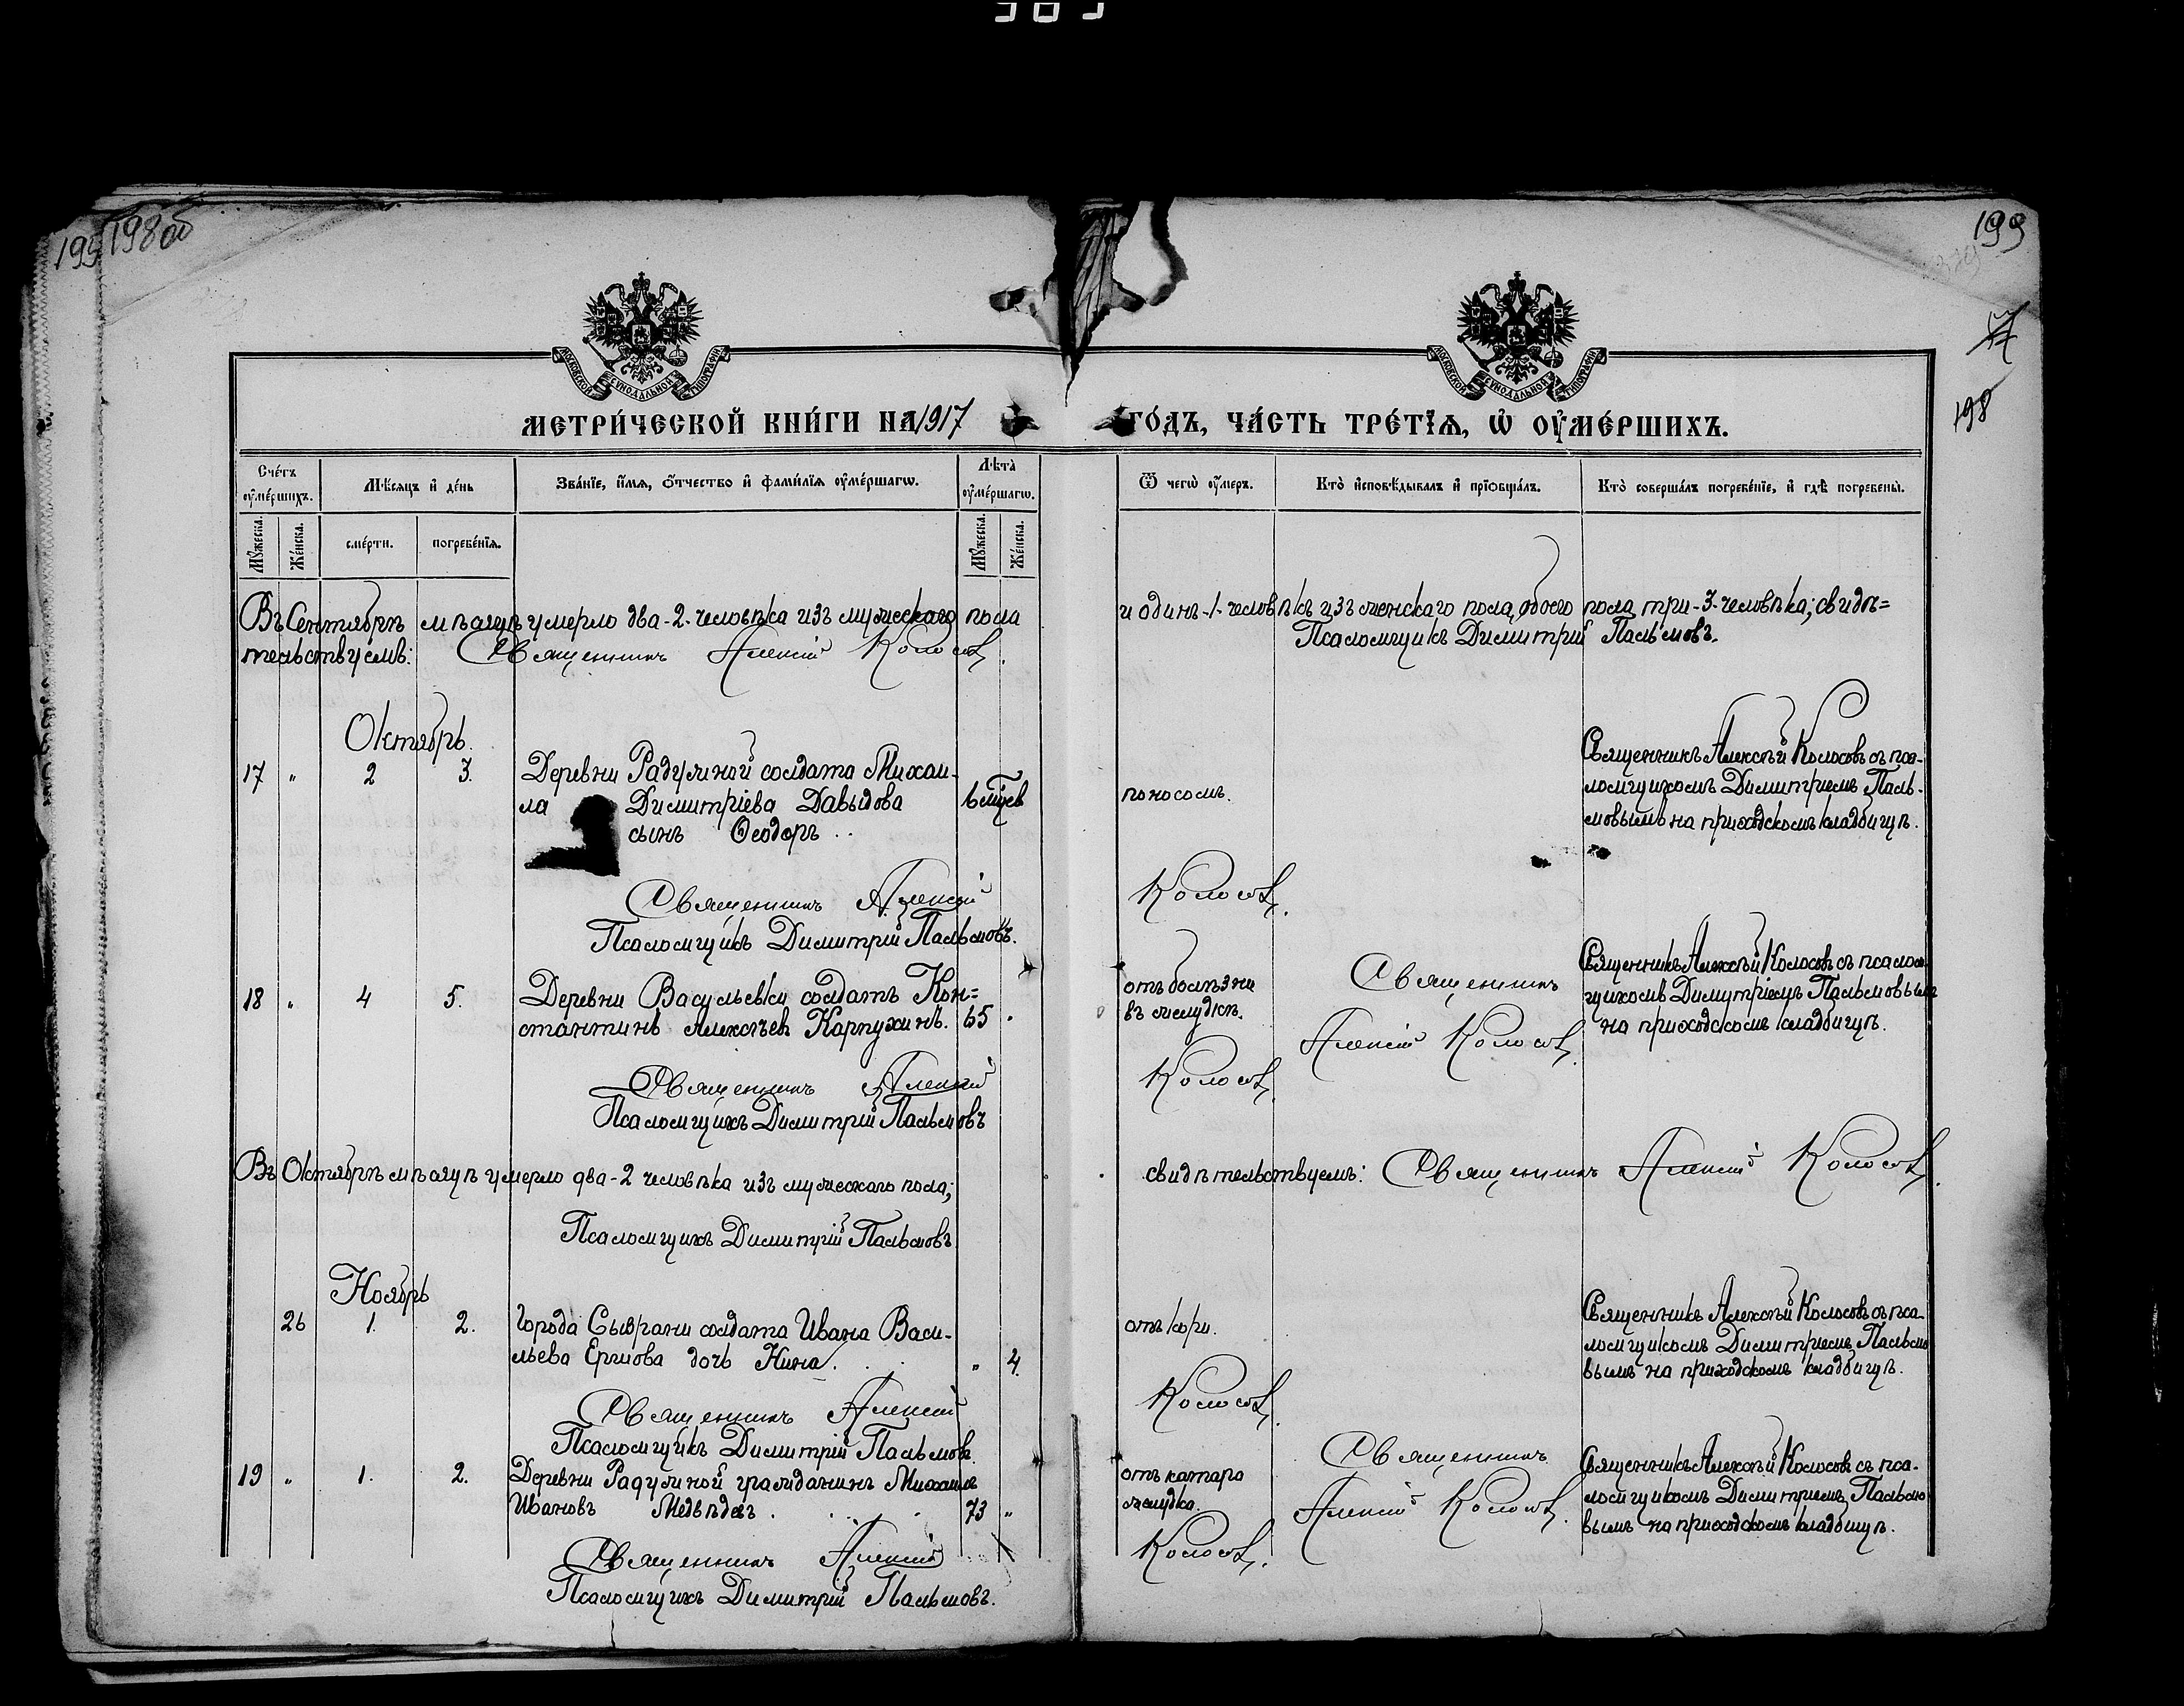 198об
199
198
МОСКОВСКОЙ СѴНОДАЛЬНОЙ ТИПОГРАФІИ
МОСКОВСКОЙ СѴНОДАЛЬНОЙ ТИПОГРАФІИ
МЕТРИ́ЧЕСКОЙ КНИ́ГИ НА 1917 ГО́ДЪ, ЧА́СТЬ ТРЕ́ТЇѦ, Ѡ ОУ҆МЕ́РШИХЪ.
Сче́тъ оу҆ме́ршихъ.
Мѣ́сяцъ и҆ де́нь
Зва́нїе, и҆́мѧ, ѻ҆́тчество и҆ фами́лїѧ оу҆ме́ршагѡ.
Лѣ̀та оу҆ме́ршагѡ.
Ѿ чегѡ̀ оу҆́меръ.
Кто̀ и҆сповѣ́дывалъ и҆ прїѡбща́лъ.
Кто̀ соверша́лъ погребе́нїе, и҆ гдѣ̀ погребены̀.
Мꙋ́жеска.
Же́нска.
сме́рти.
погребе́нїѧ.
Мꙋ́жеска.
Же́нска.
Въ Сентябрѣ мѣсяцѣ умерло два-2-человѣка изъ мужескаго пола и одинъ-1-человѣкъ изъ женскаго пола, обоего пола три-3-человѣка; свидѣ=
тельствуемъ: Священникъ Алексій Колосовъ. Псаломщикъ Димитрій Пальмовъ.
Октябрь.
17 " 2 3. Деревни Радулиной солдата Михаи-
ла Димитріева Давыдова 6 мѣсяцев
сынъ Ѳеодоръ . .
поносомъ.
Священникъ Алексѣй Колосовъ съ пса-
ломщикомъ Димитріемъ Паль-
мовымъ на приходскомъ кладбищѣ.
Священникъ Алексій Колосовъ.
Псаломщикъ Димитрій Пальмовъ.
18 " 4 5. Деревни Васильевки солдатъ Кон=
стантинъ Алексѣевъ Карпухинъ. 65 "
отъ болѣзни
въ желудкѣ.
Священникъ
Алексій Колосовъ.
Священникъ Алексѣй Колосовъ съ псалом-
щикомъ Димитріемъ Пальмовымъ
на приходскомъ кладбищѣ.
Священникъ Алексій Колосовъ.
Псаломщикъ Димитрій Пальмовъ
Въ Октябрѣ мѣсяцѣ умерло два-2 человѣка изъ мужескаго пола; свидѣтельствуемъ: Священникъ Алексій Колосовъ.
Псаломщикъ Димитрій Пальмовъ
Ноябрь
26 1. 2. Города Сызрани солдата Ивана Васи-
льева дочь Нина. " 4.
отъ кори.
Священникъ Алексѣй Колосовъ съ пса-
ломщикомъ Димитріемъ Пальмо
вымъ на приходскомъ кладбищѣ.
Священникъ Алексій Колосовъ.
Псаломщикъ Димитрій Пальмовъ.
19 " 1. 2. Деревни Радулиной гражданинъ Михаилъ
Ивановъ Медвѣдевъ . . . . 73 "
отъ катара
желудка.
Священникъ
Алексій Колосовъ.
Священникъ Алексѣй Колосовъ съ пса-
ломщикомъ Димитріемъ Пальмо
вымъ на приходскомъ кладбищѣ.
Священникъ Алексій Колосовъ.
Псаломщикъ Димитрій Пальмовъ.